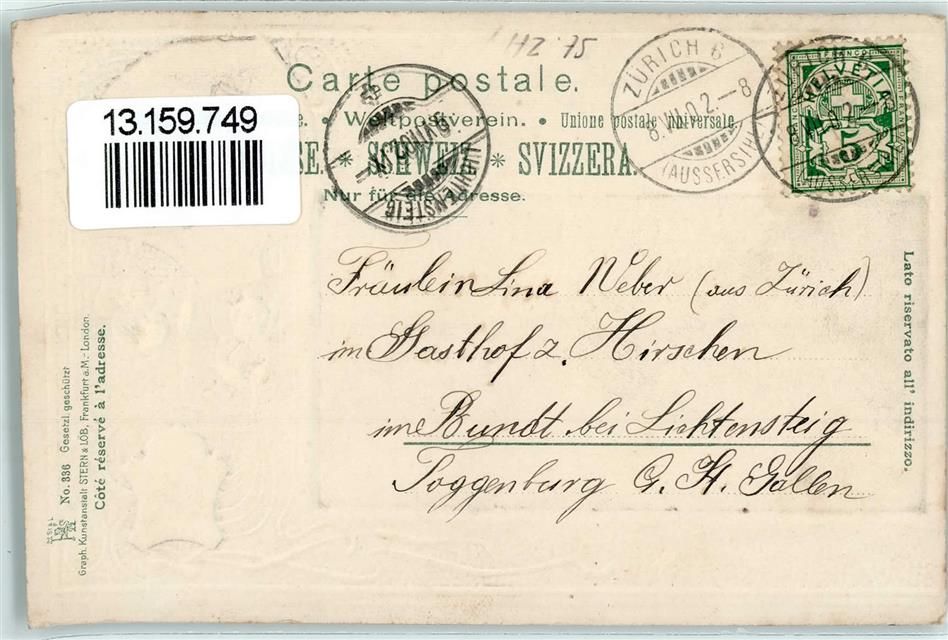 HZ 75
Carte postale.
e. • Weltpostverein. • Unione postale universale
SE. * SCHWEIZ * SVIZZERA.
Nur für die Adresse.
13.159.749
ZÜRICH 6
8.VI.02.-8
(AUSSERSIHL)
LICHTENSTEIG
FRANCO
HELVETIA
5
Fräulein Lina Weber (aus Zürich)
im Gasthof z. Hirschen
im Bundt bei Lichtensteig
Toggenburg C. St. Gallen
Lato riservato all' indirizzo.
Côté réservé à l'adresse.
No. 336 Gesetzl. geschützt
Graph. Kunstanstalt STERN & LÖB, Frankfurt a.M.- London.